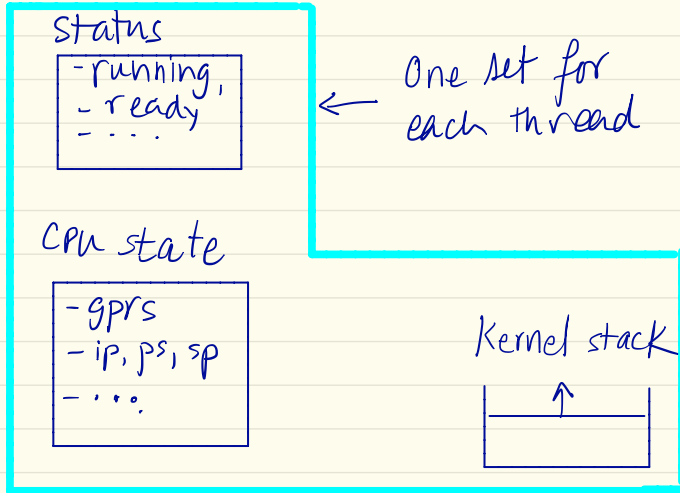 Status
- running,
- ready
- ...
One set for
each thread
CPU state
- gprs
- ip, ps, sp
- ...
Kernel stack